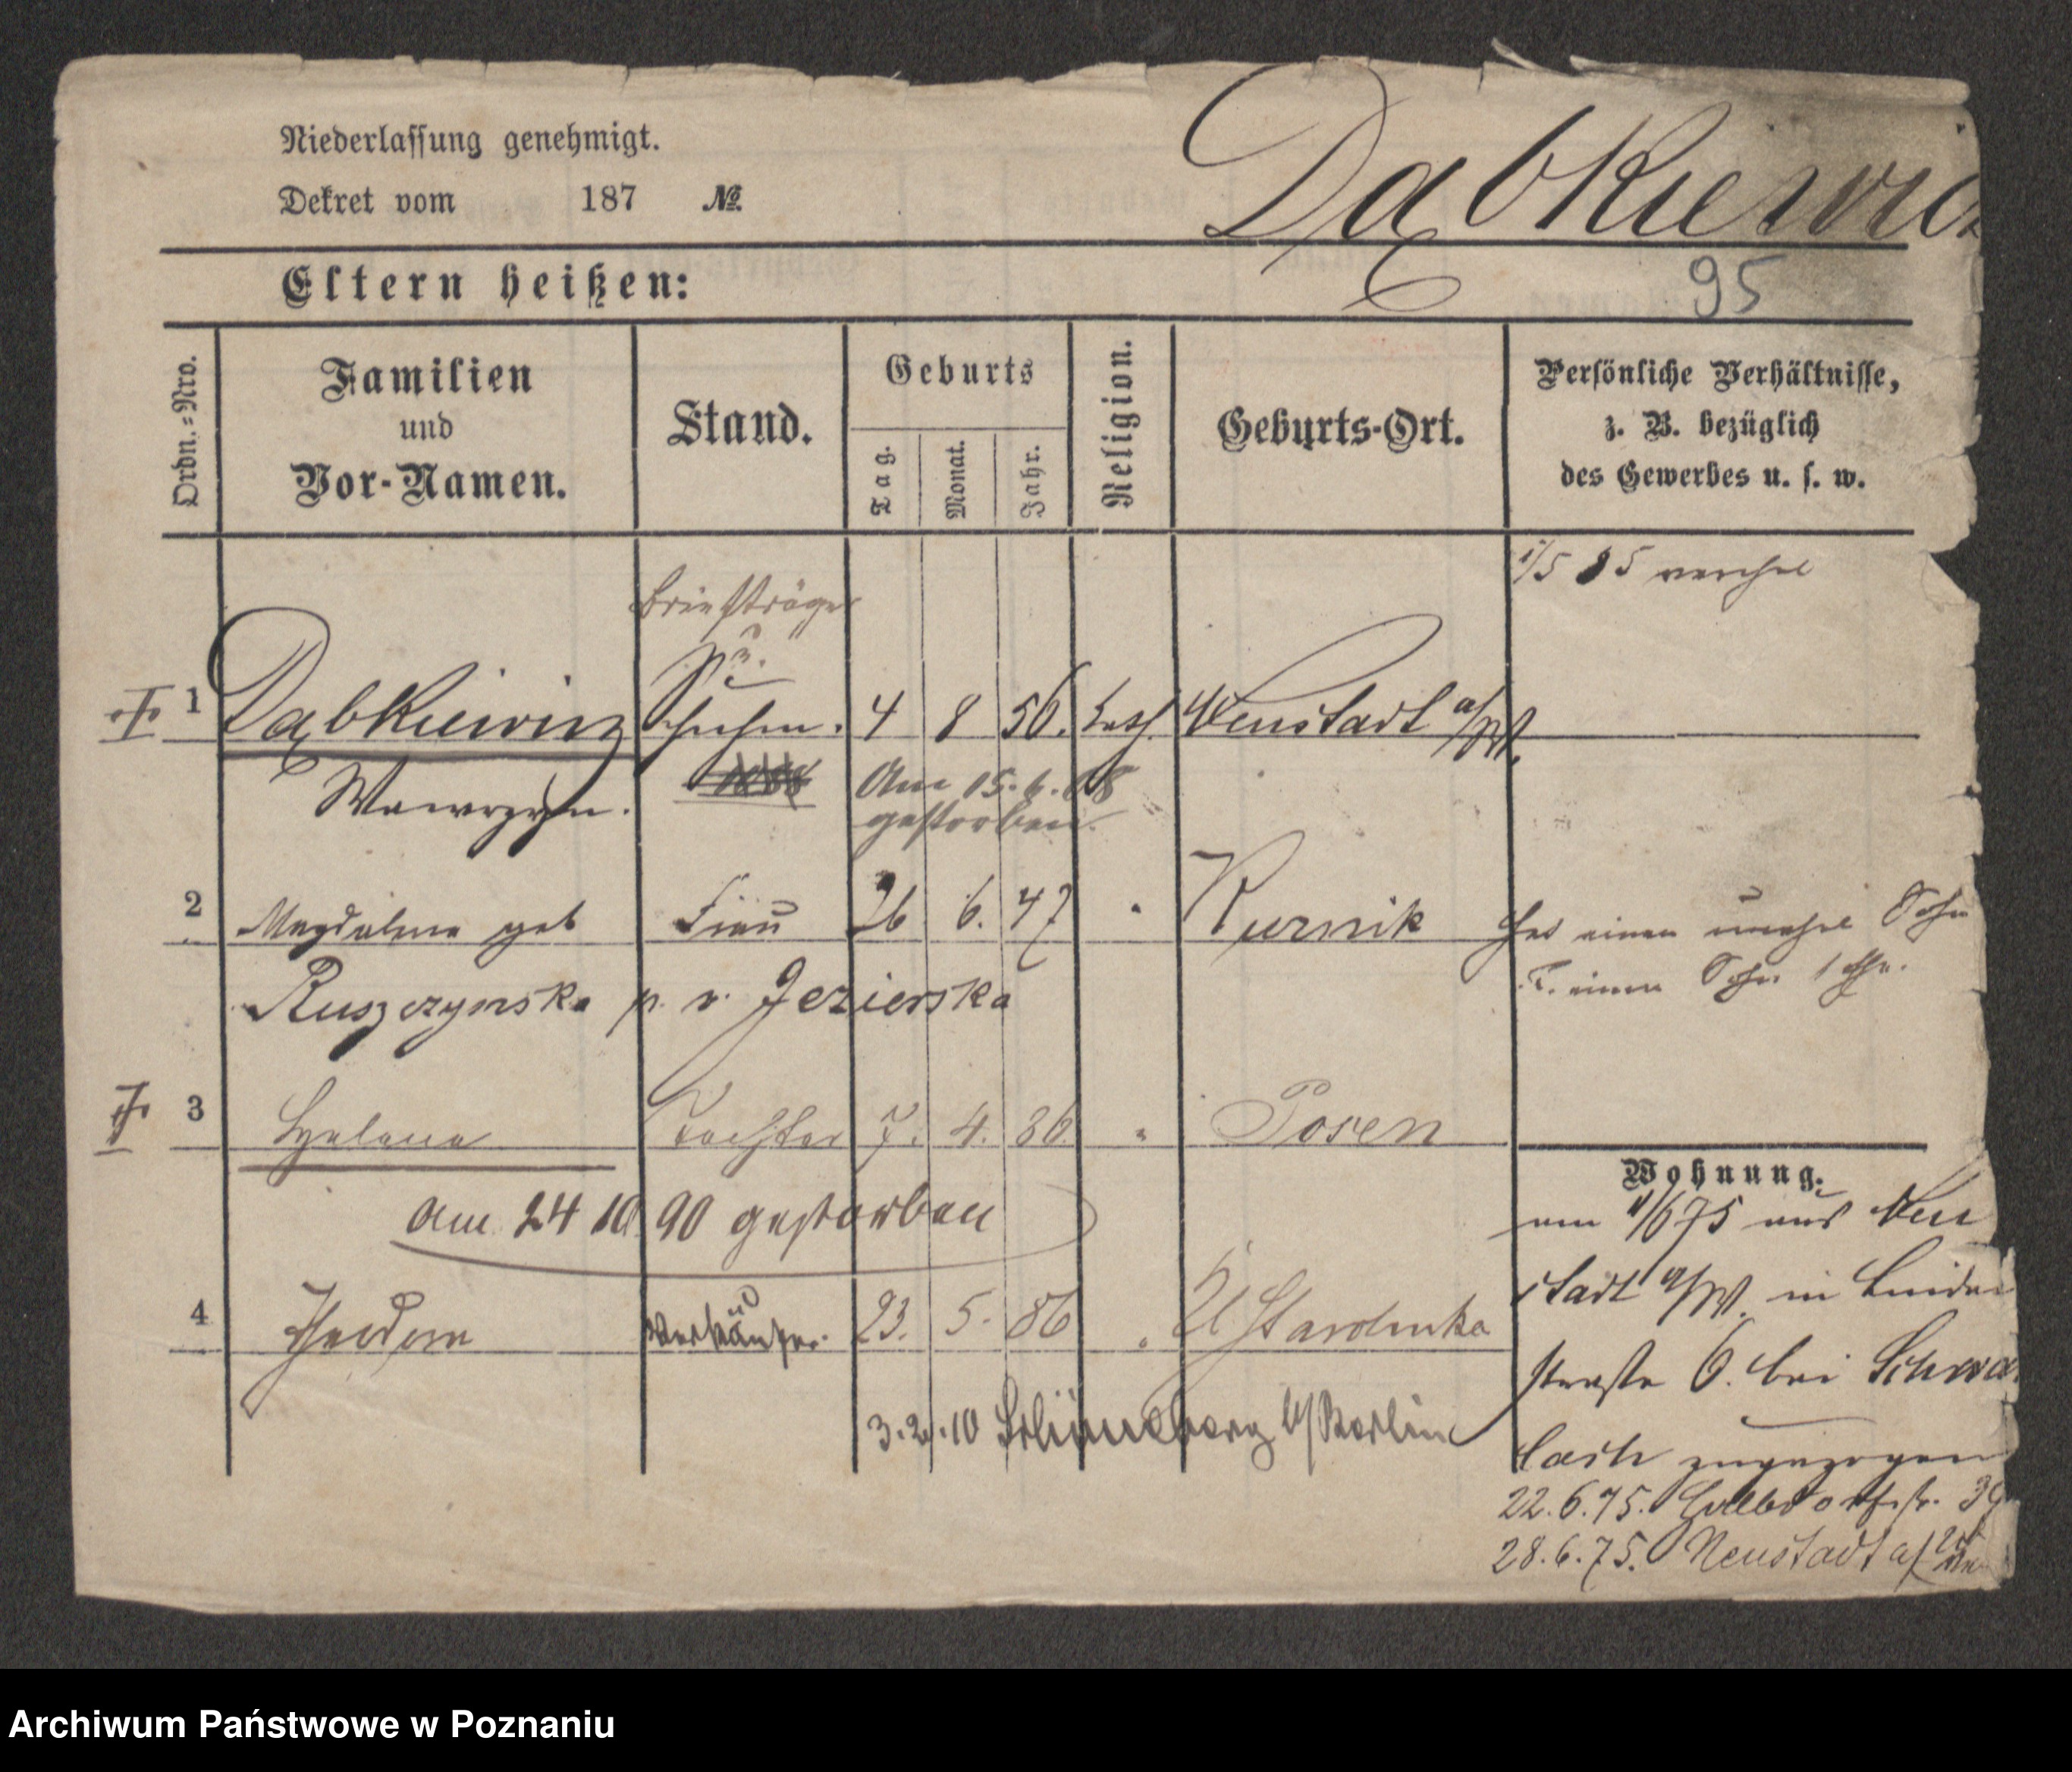 Niederlassung genehmigt.
Dekret vom 187 №
Dąbkiewicz
95
Eltern heißen:
Ordn.-Nro.
Familien
und
Vor-Namen.
Stand.
Geburts
Tag.
Monat.
Jahr.
Religion.
Geburts-Ort.
Persönliche Verhältnisse,
z. B. bezüglich
des Gewerbes u. s. w.
1/5 85 verehel
Briefträger
1 Dąbkiewicz Schuhm. 4 8 56. kath. Neustadt a/W.
Wawrzyn.
Am 15. 6. 08
gestorben
2 Magdalena geb Frau 26 6. 47 " Kurnik
Hat einen unehel Sohn
T. einen Sohn
Ruszczynska p. v. Jezierska
3 Helena Tochter 7. 4. 86 " Posen
am 24 10 90 gestorben
4 Theodor Verkäufer. 23. 5. 86 " Starolenka
3. 2. 10 Schöneberg b/Berlin
Wohnung.
am 11/6 75 aus Neu
stadt a/W. in Linden
straße 6. bei Schwa
lach zugezogen
22.6.75. Halbdorfstr. 39
28.6.75. Neustadt a/
Archiwum Państwowe w Poznaniu